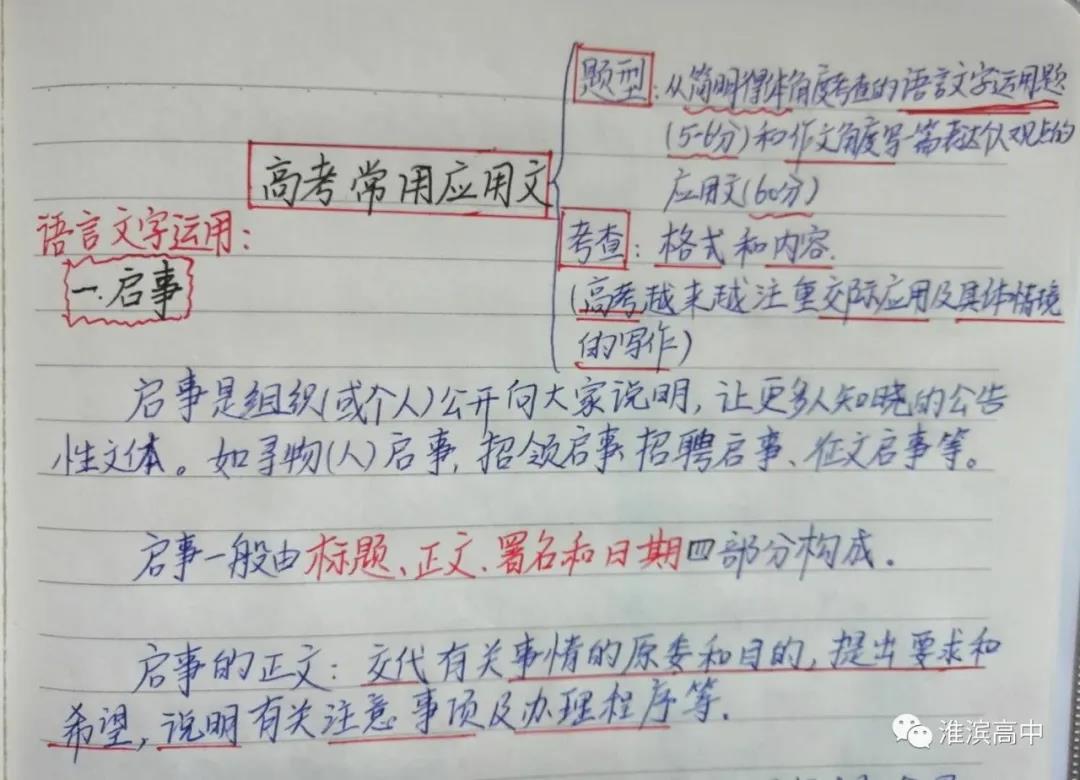 题型：从简明得体角度考查的语言文字运用题
(5-6分)和作文角度写一篇表达个人观点的
应用文(60分)
高考常用应用文
考查：格式和内容.
(高考越来越注重交际应用及具体情境
的写作)
语言文字运用：
一.启事
启事是组织(或个人)公开向大家说明,让更多人知晓的公告
性文体。如寻物(人)启事,招领启事、招聘启事、征文启事等。
启事一般由标题、正文、署名和日期四部分构成.
启事的正文：交代有关事情的原委和目的,提出要求和
希望,说明有关注意事项及办理程序等.
淮滨高中